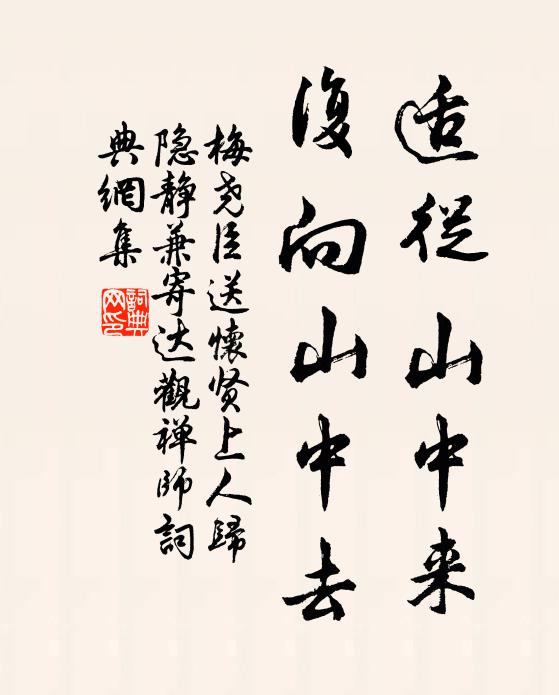 适從山中来
復向山中去
梅尧臣送懷贤上人歸
隐静兼寄达觀禅师詞
典網集
詞典网印